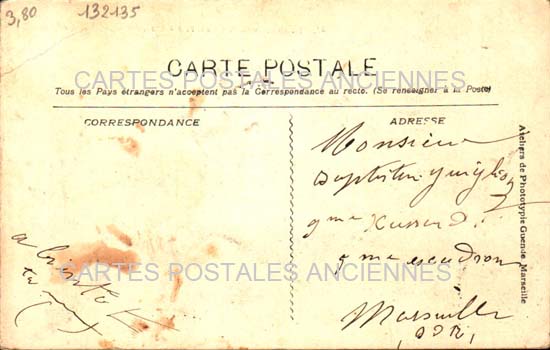 3,80
132135
CARTE POSTALE
CARTES POSTALES ANCIENNES
Tous les Pays étrangers n'acceptent pas la Correspondance au recto. (Se renseigner à la Poste)
CORRESPONDANCE
ADRESSE
Monsieur
9me Hussard
9me escadron
Marseille
a bientôt
CARTES POSTALES ANCIENNES
Ateliers de Phototypie Guende Marseille